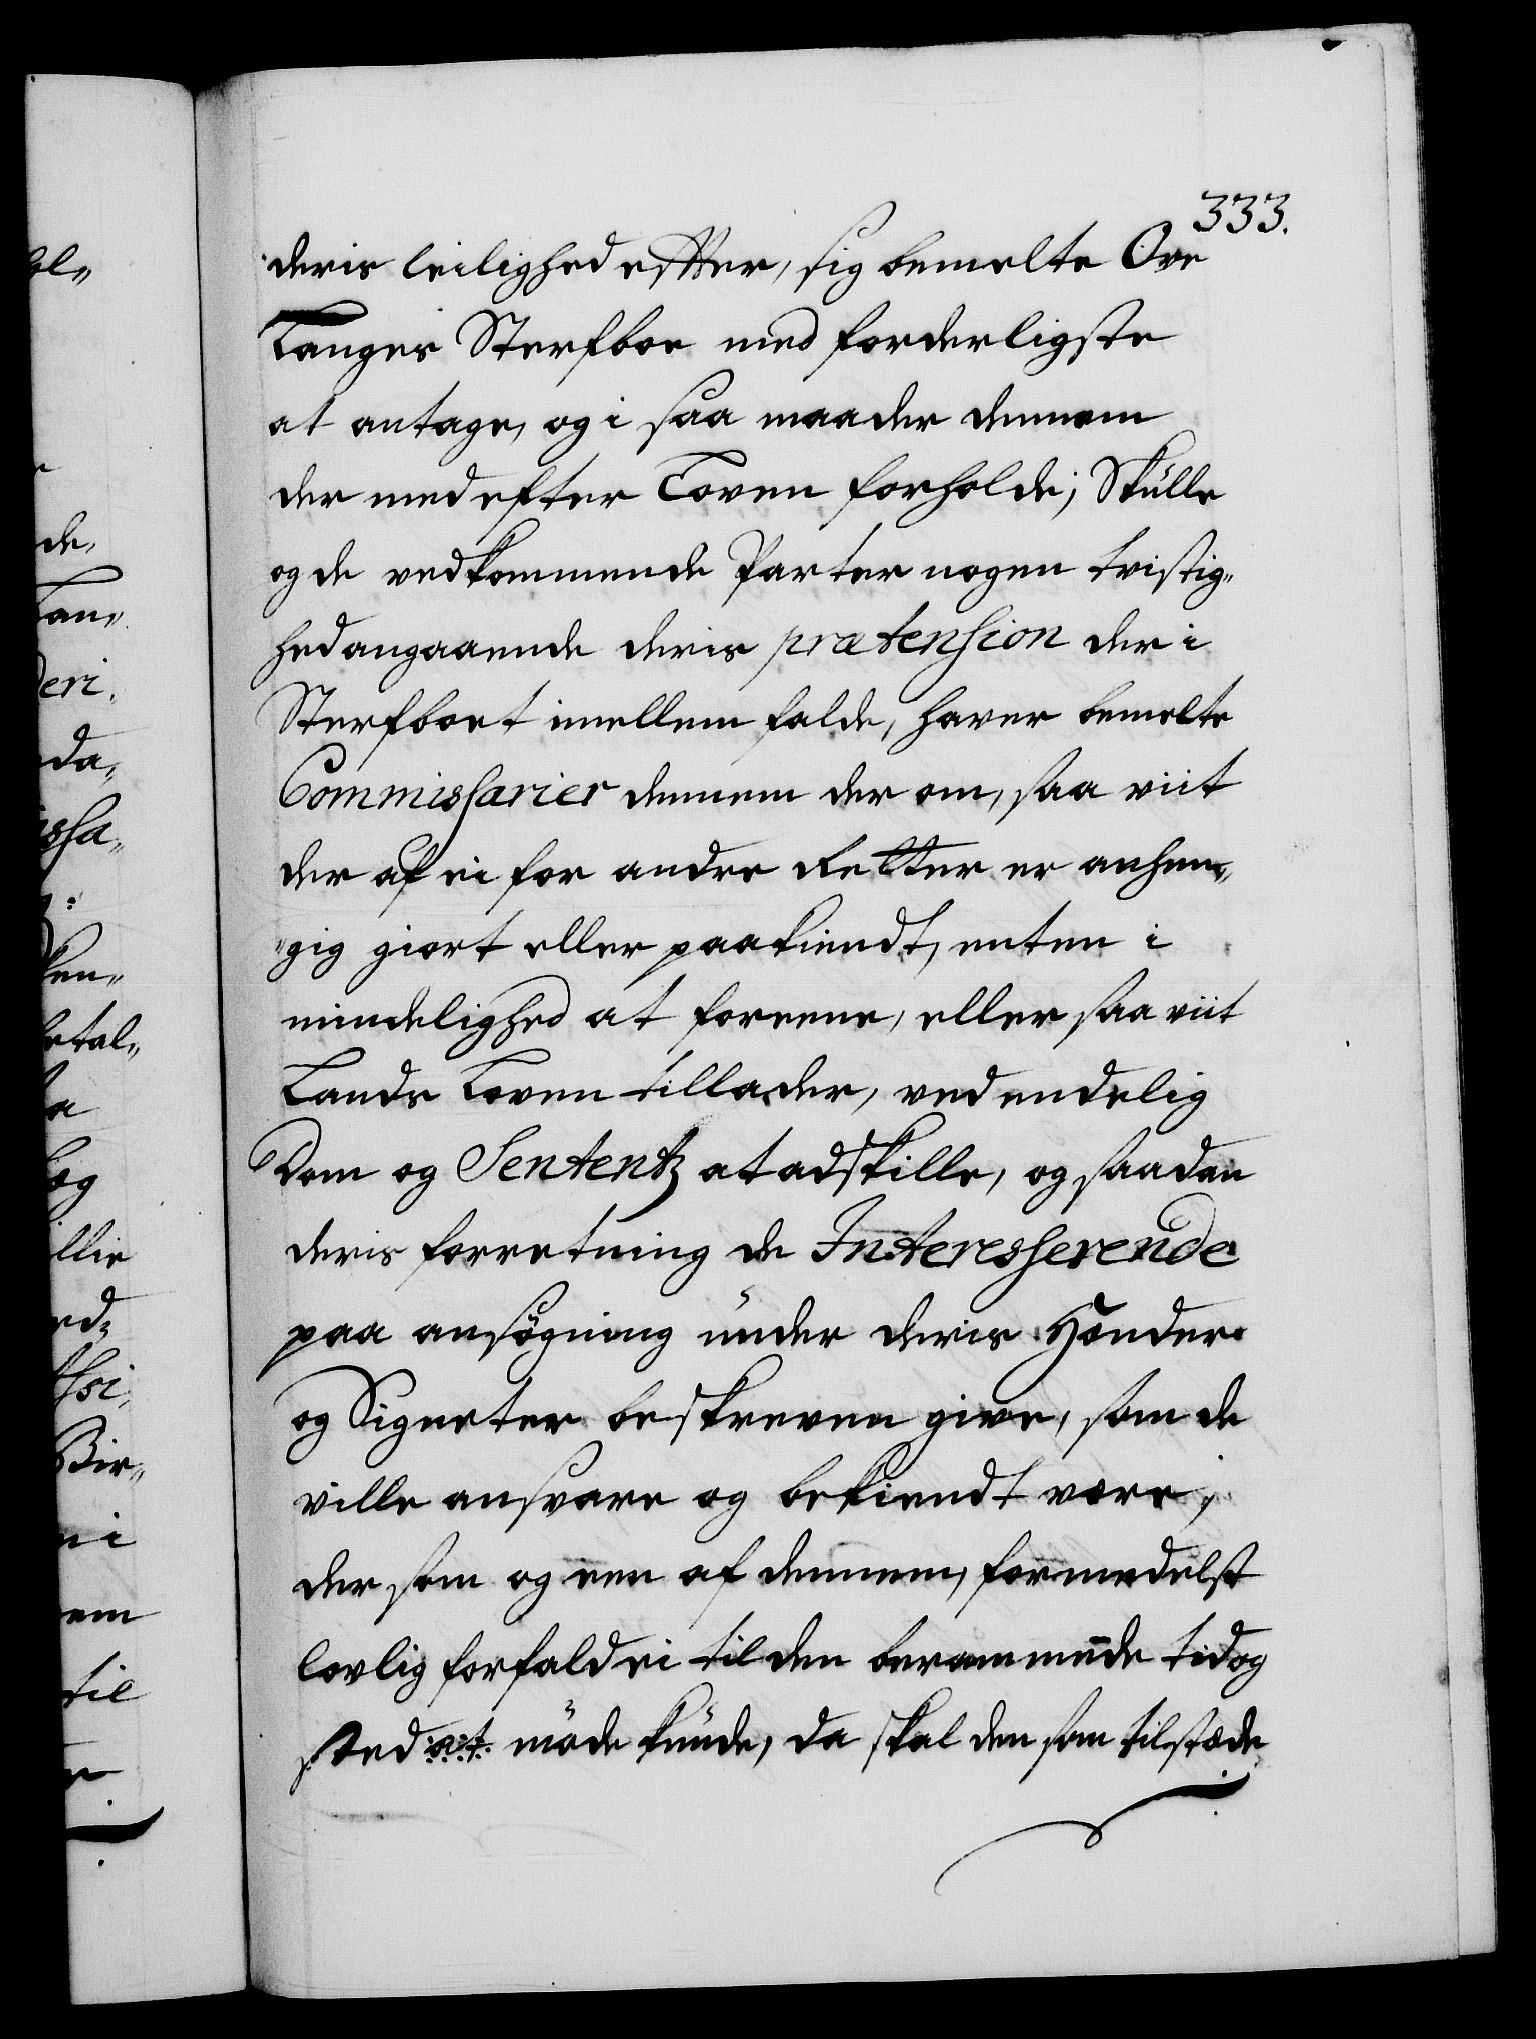 333.
deris leilighed effter, sig bemelte Ove
Langes Sterfboe med forderligste
at antage, og i saa maader dennem
der med efter Loven forholde; Skulle
og de vedkommende Parter nogen tvistig„
hed angaaende deris prætension der i
Sterfboet imellem falde, haver bemelte
Commissarier dennem der om, saa viit
der af ei for andre Retter er anhen„
„gig giort eller paakiendt, enten i
mindelighed at foreene, eller saa viit
Lands Loven tillader, ved endelig
Dom og Sententz at adskille, og saadan
deris forretning de Interesserende
paa ansøgning under deris Hænder
og Signeter beskreven give, som de
ville ansvare og bekiendt være;
der som og een af dennem, formedelst
lovlig forfald ei til den berammede tid og
sted at møde kunde, da skal den som tilstæde